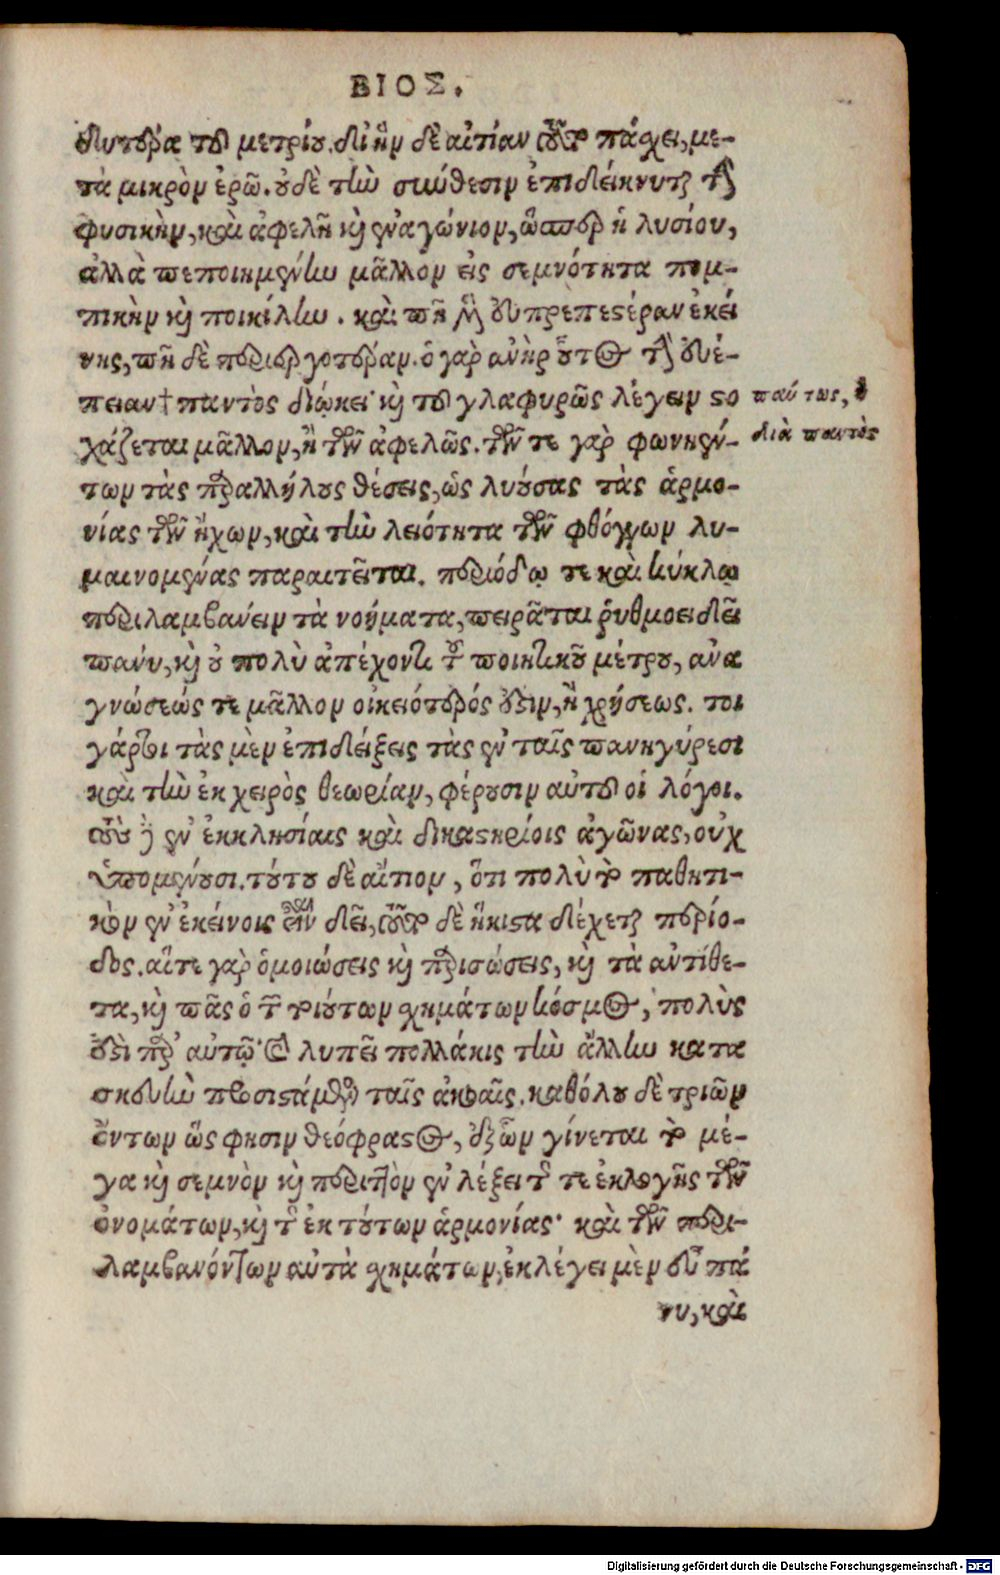 ΒΙΟΣ.
δευτέρα τοῦ μετρίου. δι' ἣν δὲ αἰτίαν τοῦτο πάσχει, με-
τὰ μικρὸν ἐρῶ. οὐδὲ τὴν σύνθεσιν ἐπιδείκνυται τὴν
φυσικὴν, καὶ ἀφελῆ καὶ ἐναγώνιον, ὥσπερ ἡ λυσίου,
ἀλλὰ πεποιημένην μᾶλλον εἰς σεμνότητα πομ-
πικὴν καὶ ποικίλην. καὶ πῆ μὲν εὐπρεπεστέραν ἐκεί
νης, πῆ δὲ περιεργοτέραν. ὁ γὰρ ἀνὴρ οὗτος τὴν εὐέ-
πειαν † παντὸς διώκει· καὶ τοῦ γλαφυρῶς λέγειν στο
πάντως, ἢ
διὰ παντὸς
χάζεται μᾶλλον, ἢ τῶν ἀφελῶς. τῶν τε γὰρ φωνηέν-
των τὰς παραλλήλους θέσεις, ὡς λυούσας τὰς ἁρμο-
νίας τῶν ἤχων, καὶ τὴν λειότητα τῶν φθόγγων λυ-
μαινομένας παραιτεῖται. περιόδῳ τε καὶ κύκλῳ
περιλαμβάνειν τὰ νοήματα, πειρᾶται ῥυθμοειδεῖ
πάνυ, καὶ οὐ πολὺ ἀπέχοντι τοῦ ποιητικοῦ μέτρου, ἀνα
γνώσεώς τε μᾶλλον οἰκειότερός ἐστιν, ἢ χρήσεως. τοι
γάρτοι τὰς μὲν ἐπιδείξεις τὰς ἐν ταῖς πανηγύρεσι
καὶ τὴν ἐκ χειρὸς θεωρίαν, φέρουσιν αὐτοῦ οἱ λόγοι.
τοὺς δὲ ἐν ἐκκλησίαις καὶ δικαστηρίοις ἀγῶνας, οὐχ
ὑπομένουσι. τούτου δὲ αἴτιον, ὅτι πολὺ τὸ παθητι-
κὸν ἐν ἐκείνοις εἶναι δεῖ, τοῦτο δὲ ἥκιστα δέχεται περίο-
δος. αἵ τε γὰρ ὁμοιώσεις καὶ παρισώσεις, καὶ τὰ ἀντίθε-
τα, καὶ πᾶς ὁ τῶν τοιούτων σχημάτων κόσμος, πολὺς
ἐστὶ παρ' αὐτῷ· καὶ λυπεῖ πολλάκις τὴν ἄλλην κατα
σκευὴν προσιστάμενος ταῖς ἀκοαῖς. καθόλου δὲ τριῶν
ὄντων ὥς φησιν θεόφραστος, ἐξ ὧν γίνεται τὸ μέ-
γα καὶ σεμνὸν καὶ περιττὸν ἐν λέξει τῆς τε ἐκλογῆς τῶν
ὀνομάτων, καὶ τῆς ἐκ τούτων ἁρμονίας· καὶ τῶν περι-
λαμβανόντων αὐτὰ σχημάτων, ἐκλέγει μὲν εὖ πά
νυ, καὶ
Digitalisierung gefördert durch die Deutsche Forschungsgemeinschaft - DFG